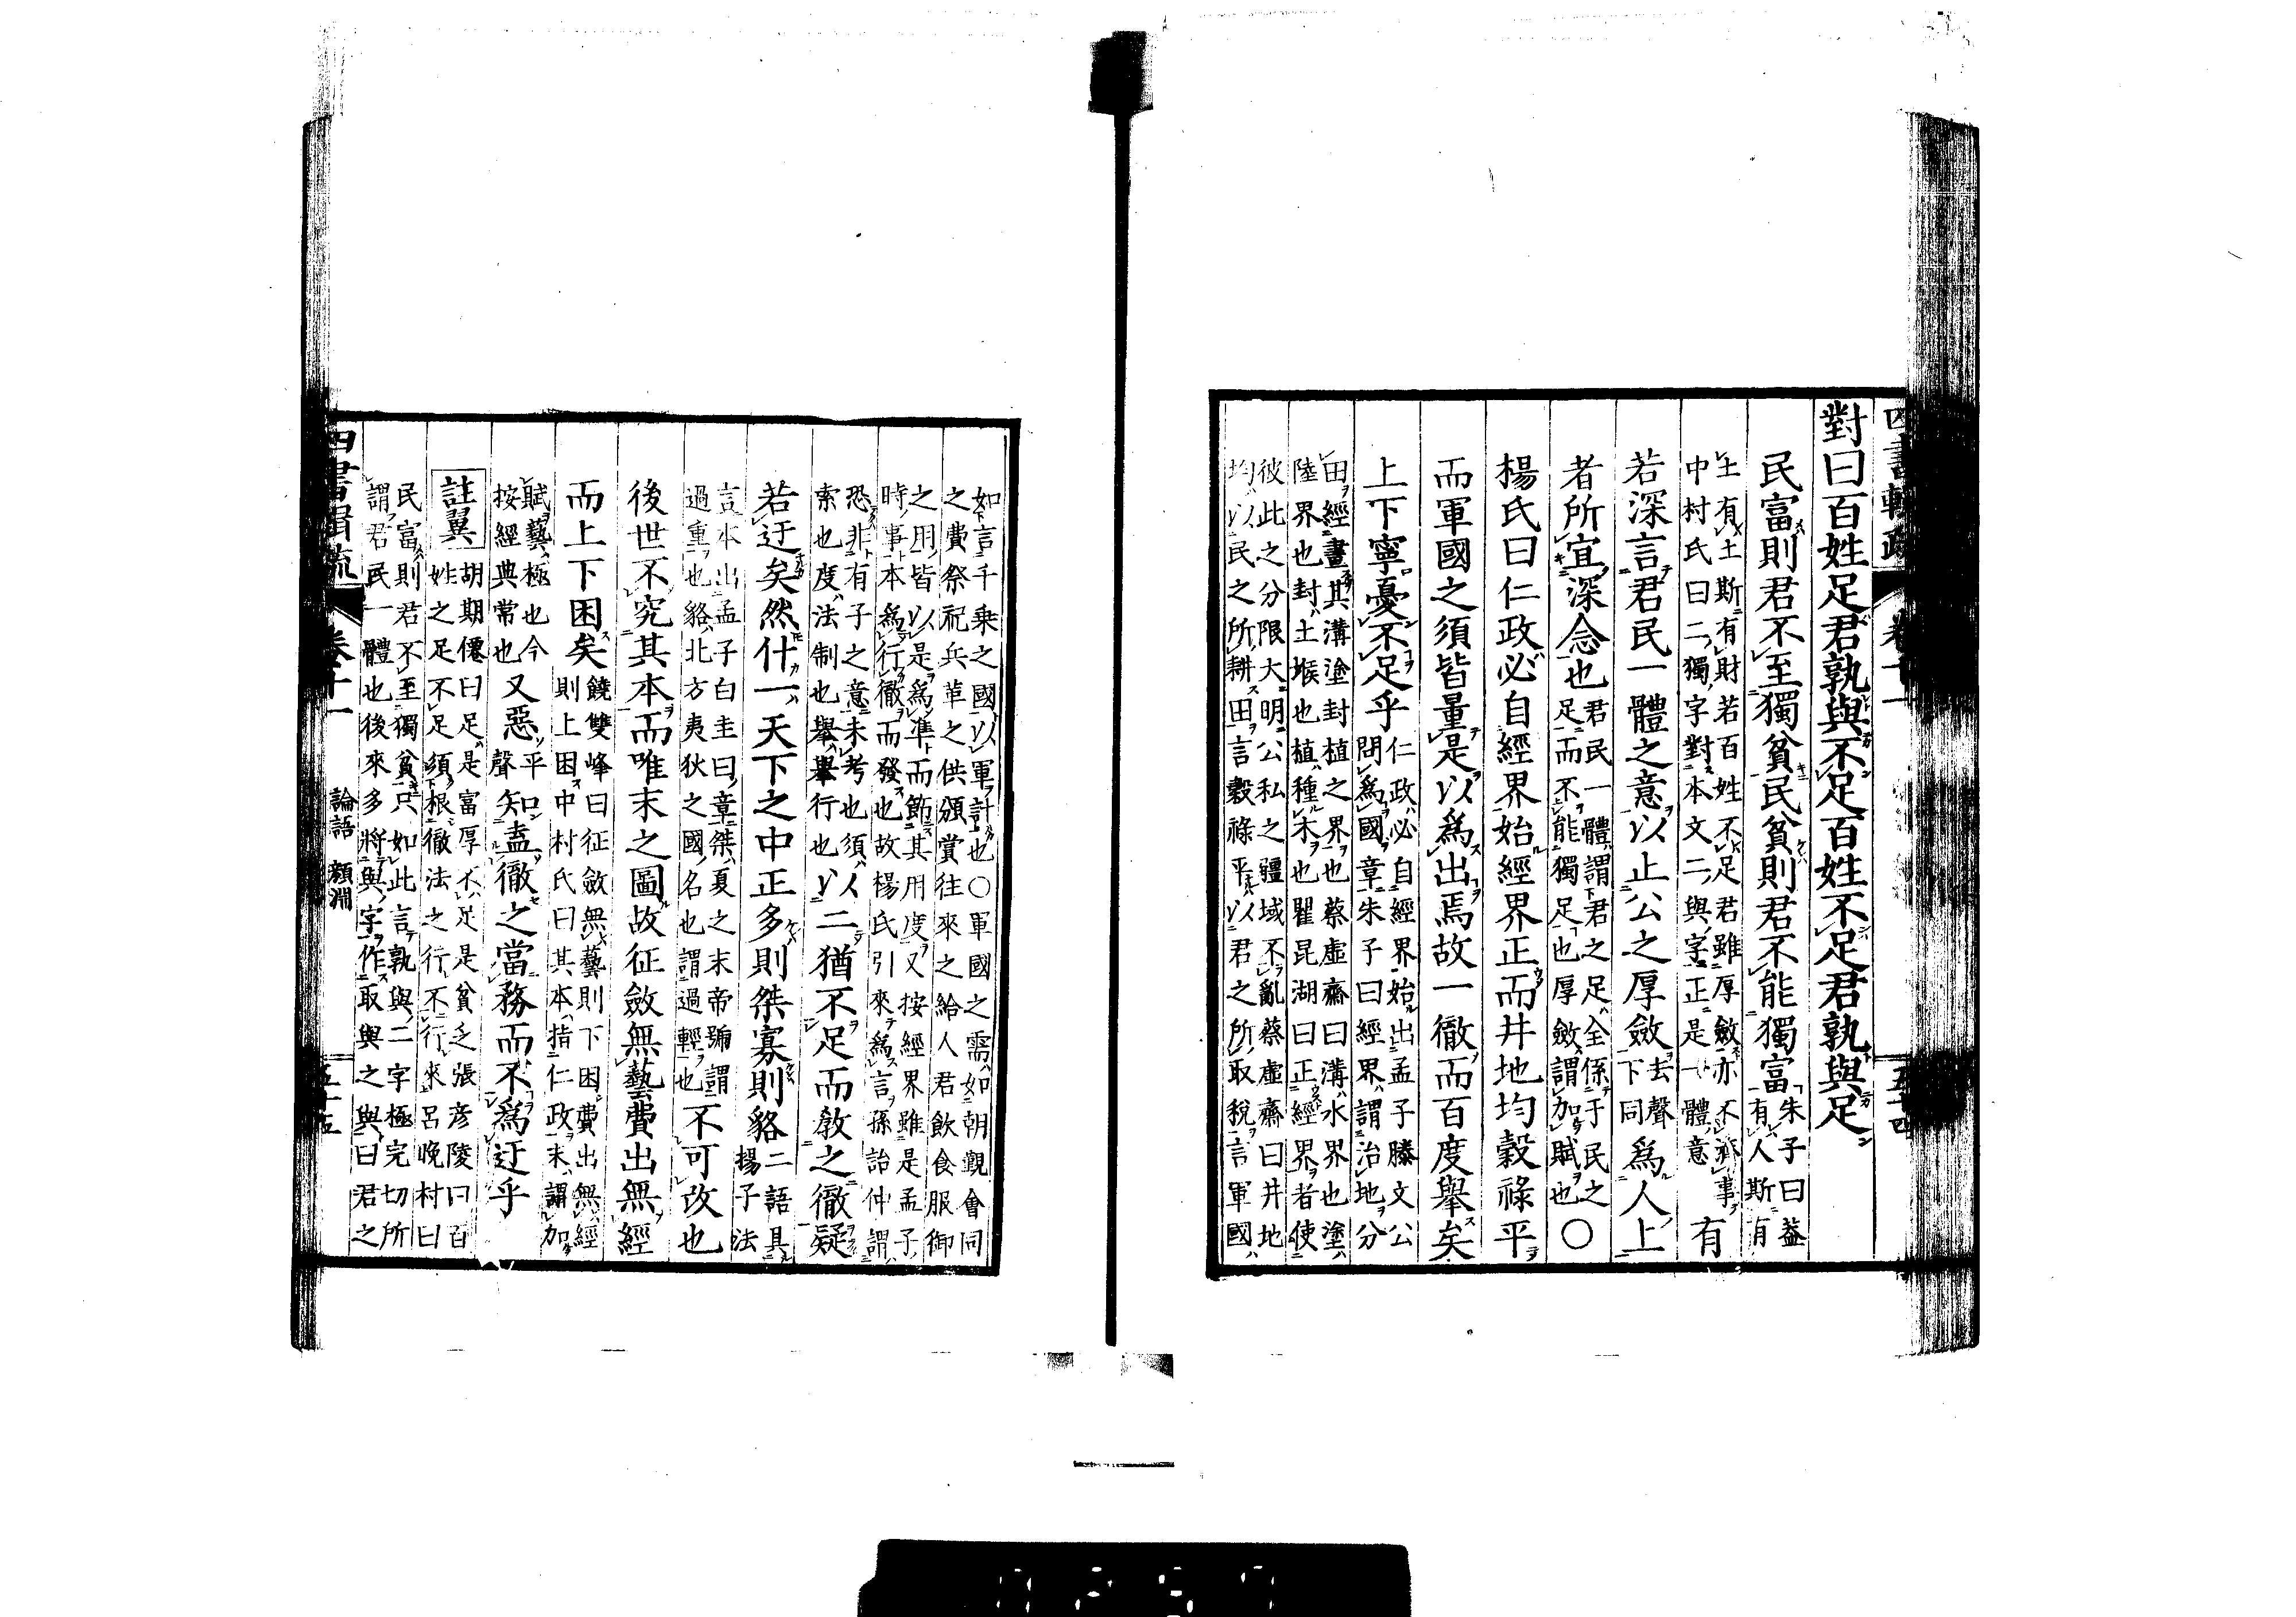 四書輯疏 卷十一 五十四
對曰百姓足君孰與不足百姓不足君孰與足
民富則君不至獨貧民貧則君不能獨富
朱子曰葢
有人斯有
土有土斯有財若百姓不足君雖厚斂亦不濟事
中村氏曰二獨字對本文二與字正是一體意
有
若深言君民一體之意以止公之厚斂
去聲
下同
爲人上
者所宜深念也
君民一體謂君之足全係于民之
足而不能獨足也厚斂謂加賦也
○
楊氏曰仁政必自經界始經界正而井地均穀祿平
而軍國之須皆量是以爲出焉故一徹而百度舉矣
上下寧憂不足乎
仁政必自經界始出孟子滕文公
問爲國章朱子曰經界謂治地分
田經畫其溝塗封植之界也蔡虛齋曰溝水界也塗
陸界也封土堠也植種木也瞿昆湖曰正經界者使
彼此之分限大明公私之疆域不亂蔡虛齋曰井地
均以民之所耕田言穀祿平以君之所取稅言軍國
如言千乘之國以軍計也○軍國之需如朝觀會同
之費祭祀兵革之供頒賞往來之給人君飲食服御
之用皆以是爲準而節其用度又按經界雖是孟子
時事本爲行徹而發也故楊氏引來爲言孫詒仲謂
恐非有子之意未考也須以
索也度法制也舉舉行也
以二猶不足而敎之徹疑
若迂矣然什一天下之中正多則桀寡則貉
二語具
揚子法
言本出孟子白圭曰章桀夏之末帝號謂
過重也貉北方夷狄之國名也謂過輕也
不可改也
後世不究其本而唯末之圖故征斂無藝費出無經
而上下困矣
饒雙峰曰征斂無藝則下困費出無經
則上困中村氏曰其本指仁政末謂加
賦藝極也今
按經典常也
又惡
平
聲
知盍徹之當務而不爲迂乎
註翼
胡期僊曰足是富厚不足是貧乏張彥陵曰百
姓之足不足須根徹法之行不行來呂晚村曰
民富則君不至獨貧只如此言孰與二字極完切所
謂君民一體也後來多將與字作取與之與曰君之
四書輯疏 卷十一 論語 顏淵 五十五